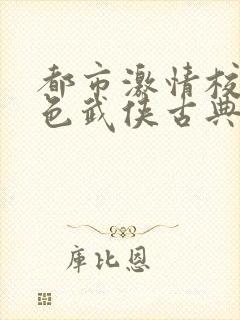 都市激情校
色武侠古典
庫比恩